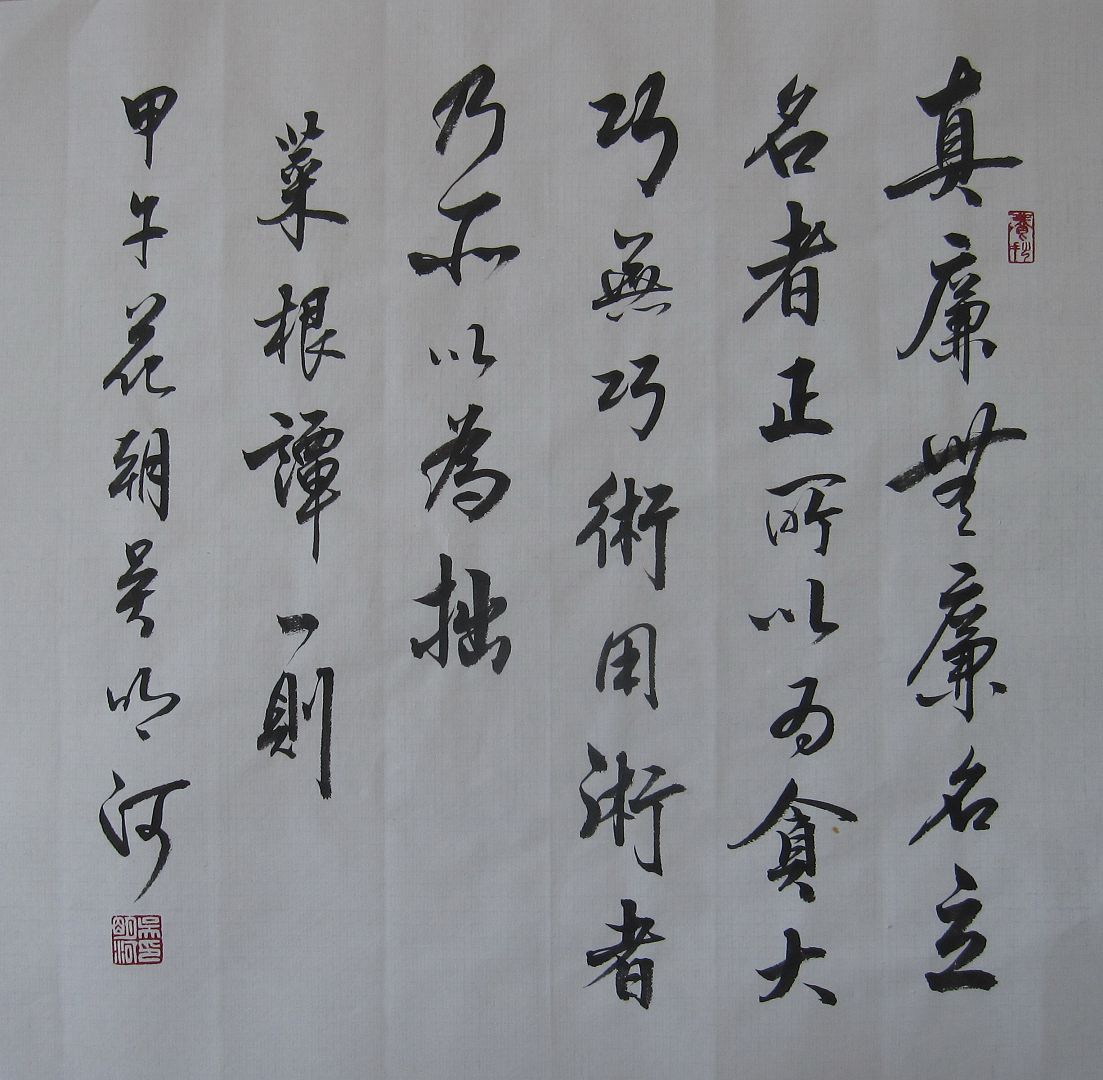 真廉無廉名立
名者正所以為貪大
巧無巧術用術者
乃所以為拙
菜根譚一則
甲午花朝吴明河
吴明河印